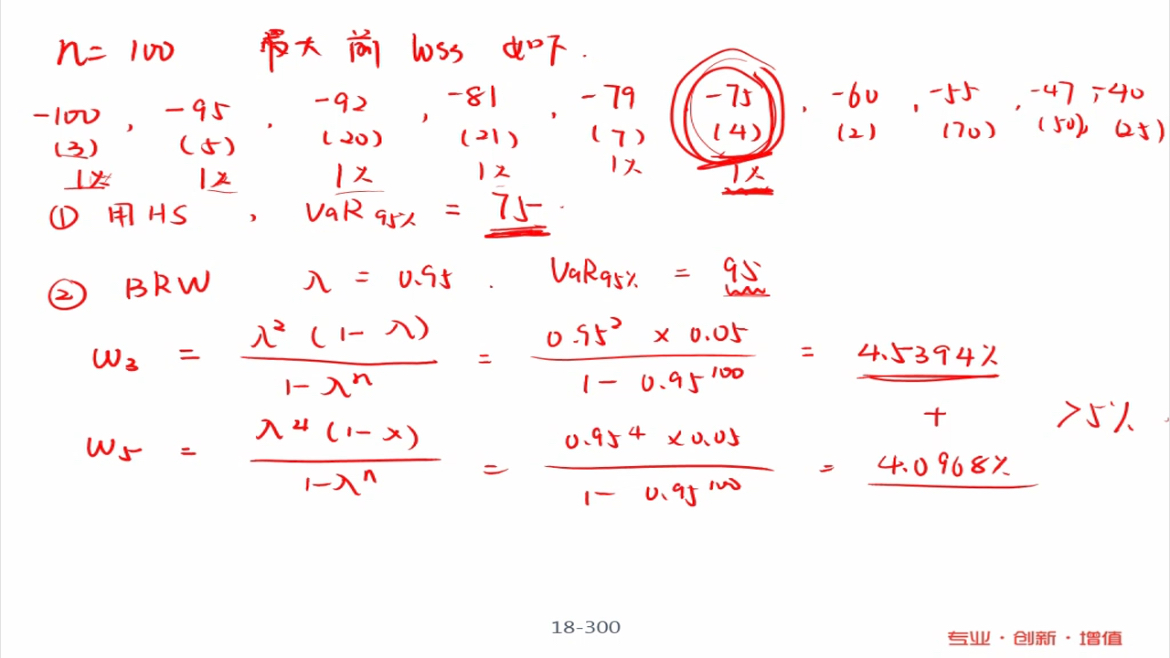 n = 100 最大前 loss 如下.
-100, -95, -92, -81, -79, -75, -60, -55, -47, -40
(3) (5) (20) (21) (7) (4) (2) (70) (50) (25)
1% 1% 1% 1% 1% 1%
① 用 HS, VaR 95% = 75.
② BRW λ = 0.95. VaR95% = 95
w₃ = λ²(1-λ) / 1-λⁿ = 0.95² × 0.05 / 1 - 0.95¹⁰⁰ = 4.5394%
+ >5%.
w₅ = λ⁴(1-λ) / 1-λⁿ = 0.95⁴ × 0.05 / 1 - 0.95¹⁰⁰ = 4.0968%
18-300
专业·创新·增值